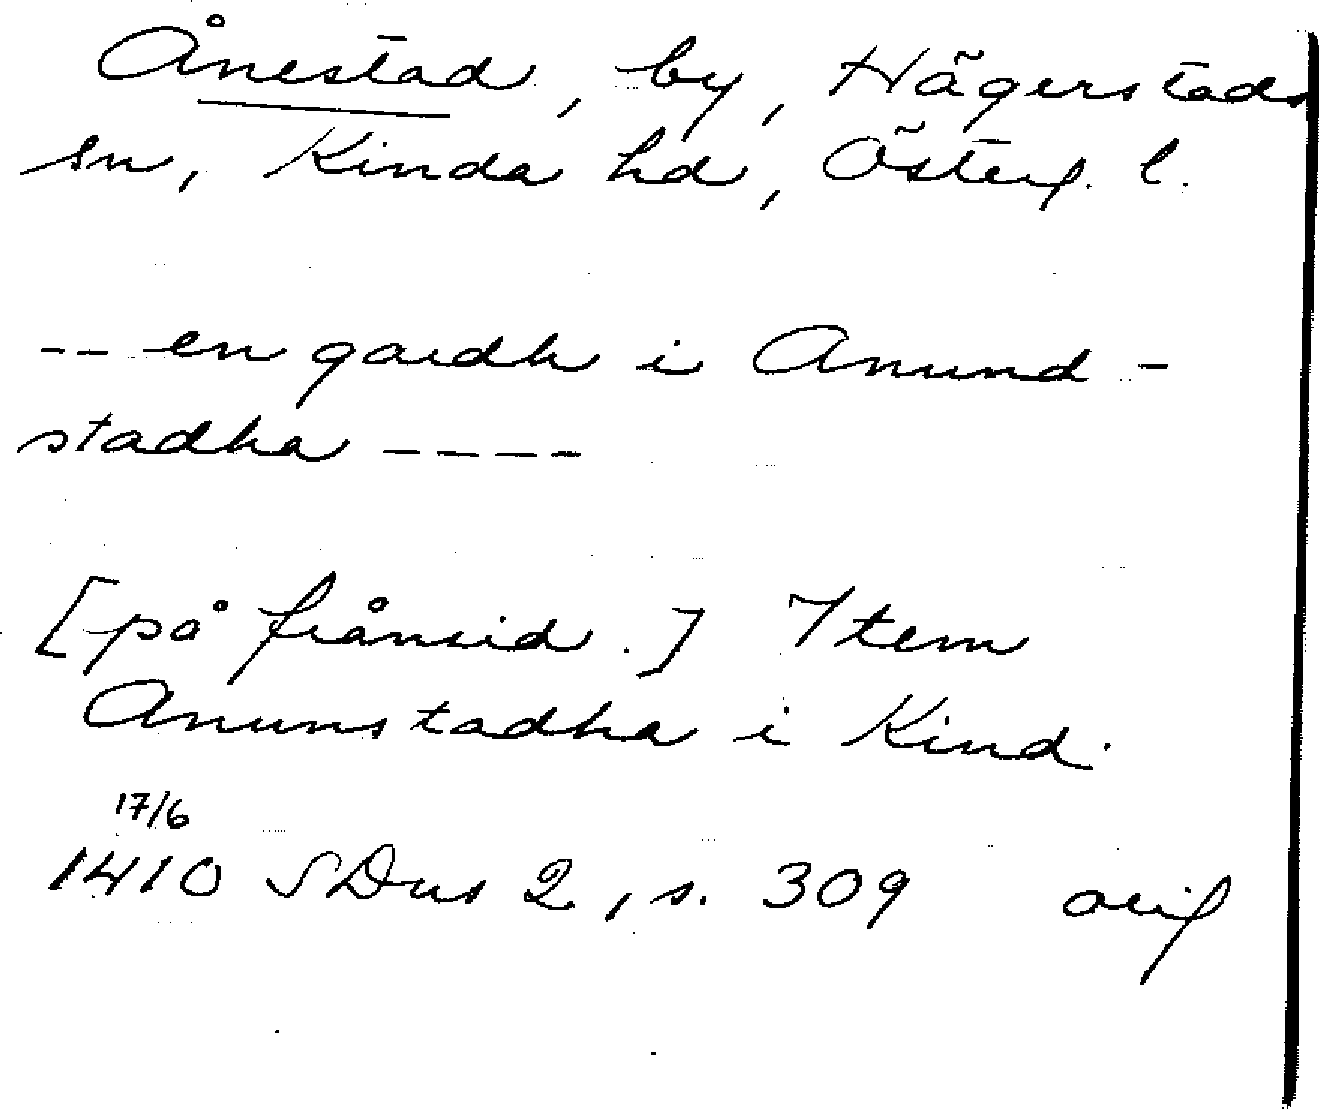 Ånestad, by, Hägerstads
sn, Kinda hd, Österg. l.
-- en gardh i Anund-
stadha ----
[på frånsid.] Item
Anunstadha i Kind.
17/6
1410 SDns 2, s. 309 orig